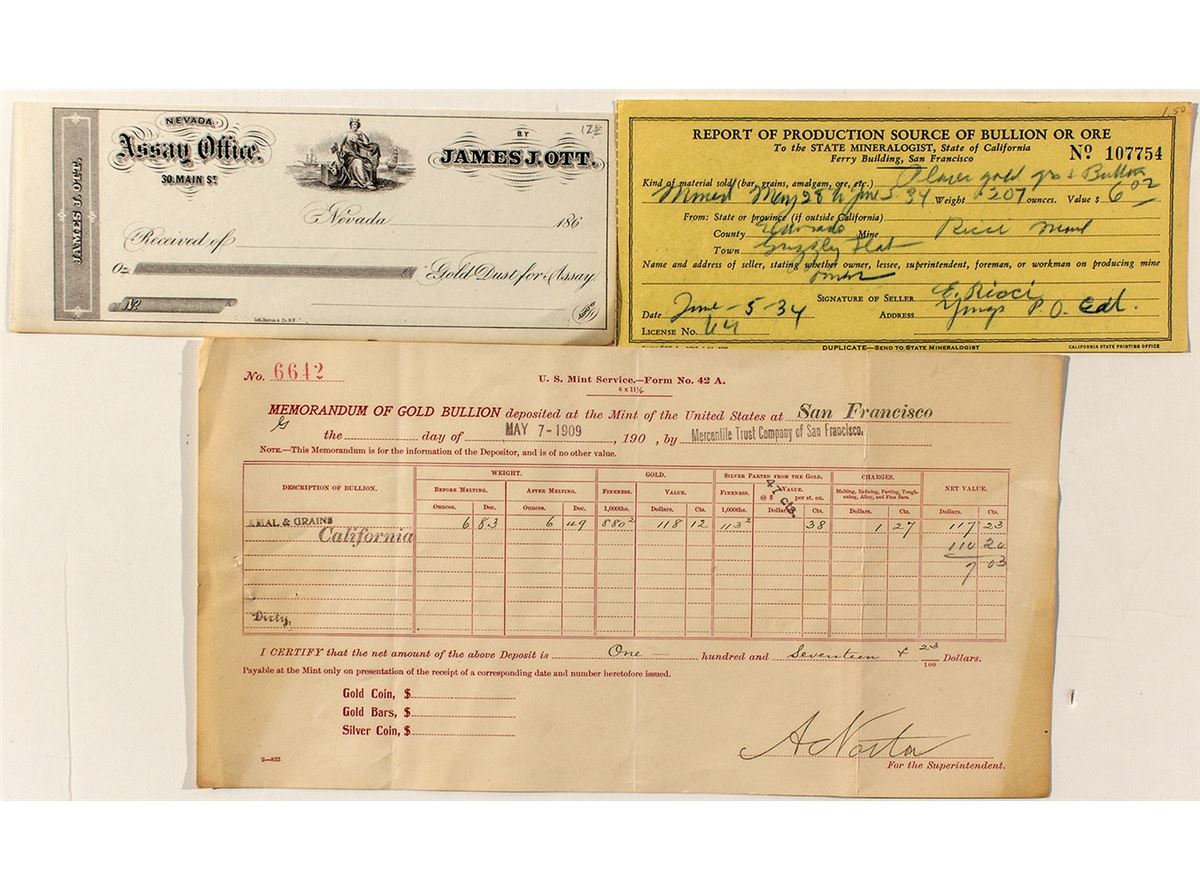 NEVADA
Assay Office.
30. MAIN ST
JAMES J. OTT.
BY
JAMES J. OTT.
Nevada 186
Received of
Oz Gold Dust for Assay.
No
1.50
REPORT OF PRODUCTION SOURCE OF BULLION OR ORE
To the STATE MINERALOGIST, State of California
Ferry Building, San Francisco
No 107754
Kind of material sold (bar, grains, amalgam, ore, etc.) Placer gold grs & Bullion
Mined May 28 to June 5 34 Weight .207 ounces. Value $ 6 02
From: State or province (if outside California)
County Eldorado Mine Ricci
Town Grizzly Flat
Name and address of seller, stating whether owner, lessee, superintendent, foreman, or workman on producing mine
owner
SIGNATURE OF SELLER E. Ricci
Date June - 5 - 34 ADDRESS P.O. Cal.
LICENSE NO. 44
DUPLICATE—SEND TO STATE MINERALOGIST
CALIFORNIA STATE PRINTING OFFICE
No. 6642
U. S. Mint Service.—Form No. 42 A.
6 x 11½.
MEMORANDUM OF GOLD BULLION deposited at the Mint of the United States at San Francisco
the day of MAY 7-1909, 190 , by Mercentile Trust Company of San Francisco.
NOTE.—This Memorandum is for the information of the Depositor, and is of no other value.
DESCRIPTION OF BULLION. WEIGHT. GOLD. SILVER PARTED FROM THE GOLD. CHARGES. NET VALUE.
BEFORE MELTING. AFTER MELTING. FINENESS. VALUE. FINENESS. VALUE. Melting, Refining, Parting, Toughening, Alloy, and Fine Bars.
@ $ 47 cts. per st. oz.
Ounces. Dec. Ounces. Dec. 1,000ths. Dollars. Cts. 1,000ths. Dollars. Cts. Dollars. Cts. Dollars. Cts.
AMAL & GRAINS 6 83 6 49 880² 118 12 113² 38 1 27 117 23
California
110 20
7 03
Dirty,
I CERTIFY that the net amount of the above Deposit is One hundred and Seventeen & 23/100 Dollars.
Payable at the Mint only on presentation of the receipt of a corresponding date and number heretofore issued.
Gold Coin, $
Gold Bars, $
Silver Coin, $
A Norton
For the Superintendent.
2—833